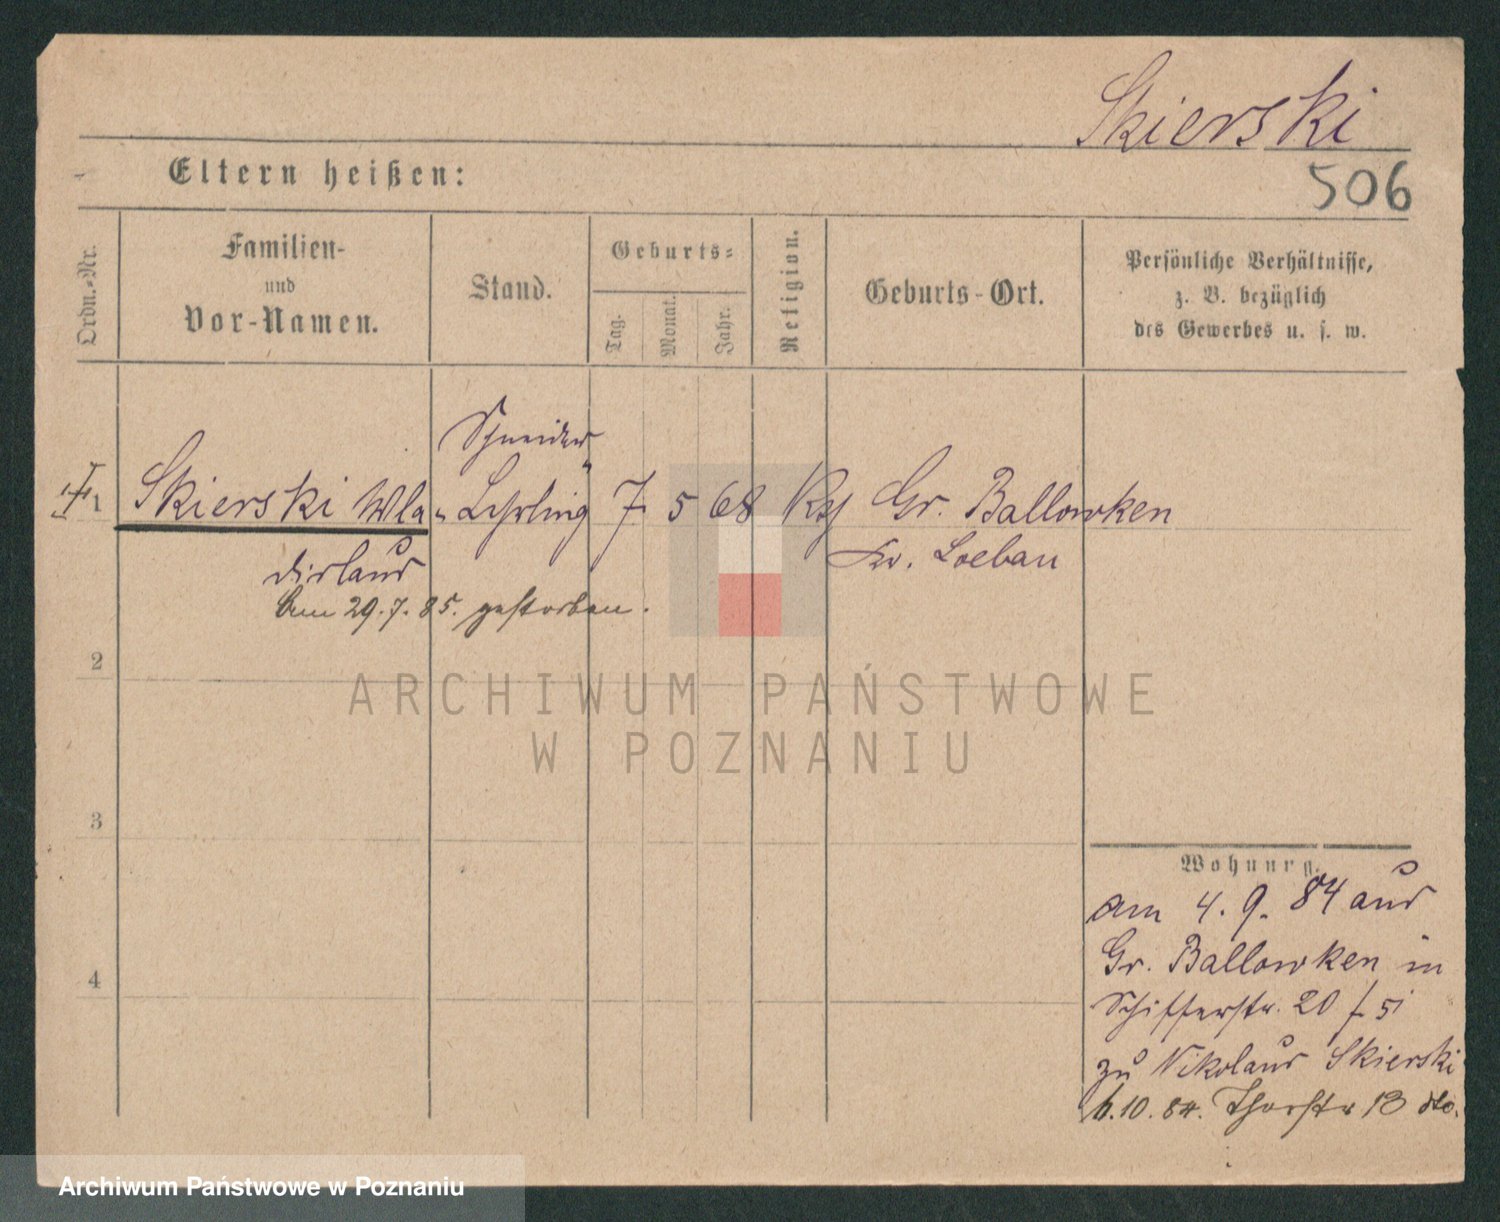 Skierski
506
Eltern heißen:
Ordn.-Nr.
Familien-
und
Vor-Namen.
Stand.
Geburts-
Tag.
Monat.
Jahr.
Religion.
Geburts-Ort.
Persönliche Verhältnisse,
z. B. bezüglich
des Gewerbes u. s. w.
Schneider
1 Skierski Wla- Lehrling 7 5 68 Gr. Ballowken
dislaus Loebau
Am 29.7.85. gestorben.
2
ARCHIWUM PAŃSTWOWE
W POZNANIU
3
Wohnung.
am 4.9.84 aus
4
Gr. Ballowken in
Schifferstr. 20
zu Nikolaus Skierski
6.10.84. Thorstr 13
Archiwum Państwowe w Poznaniu